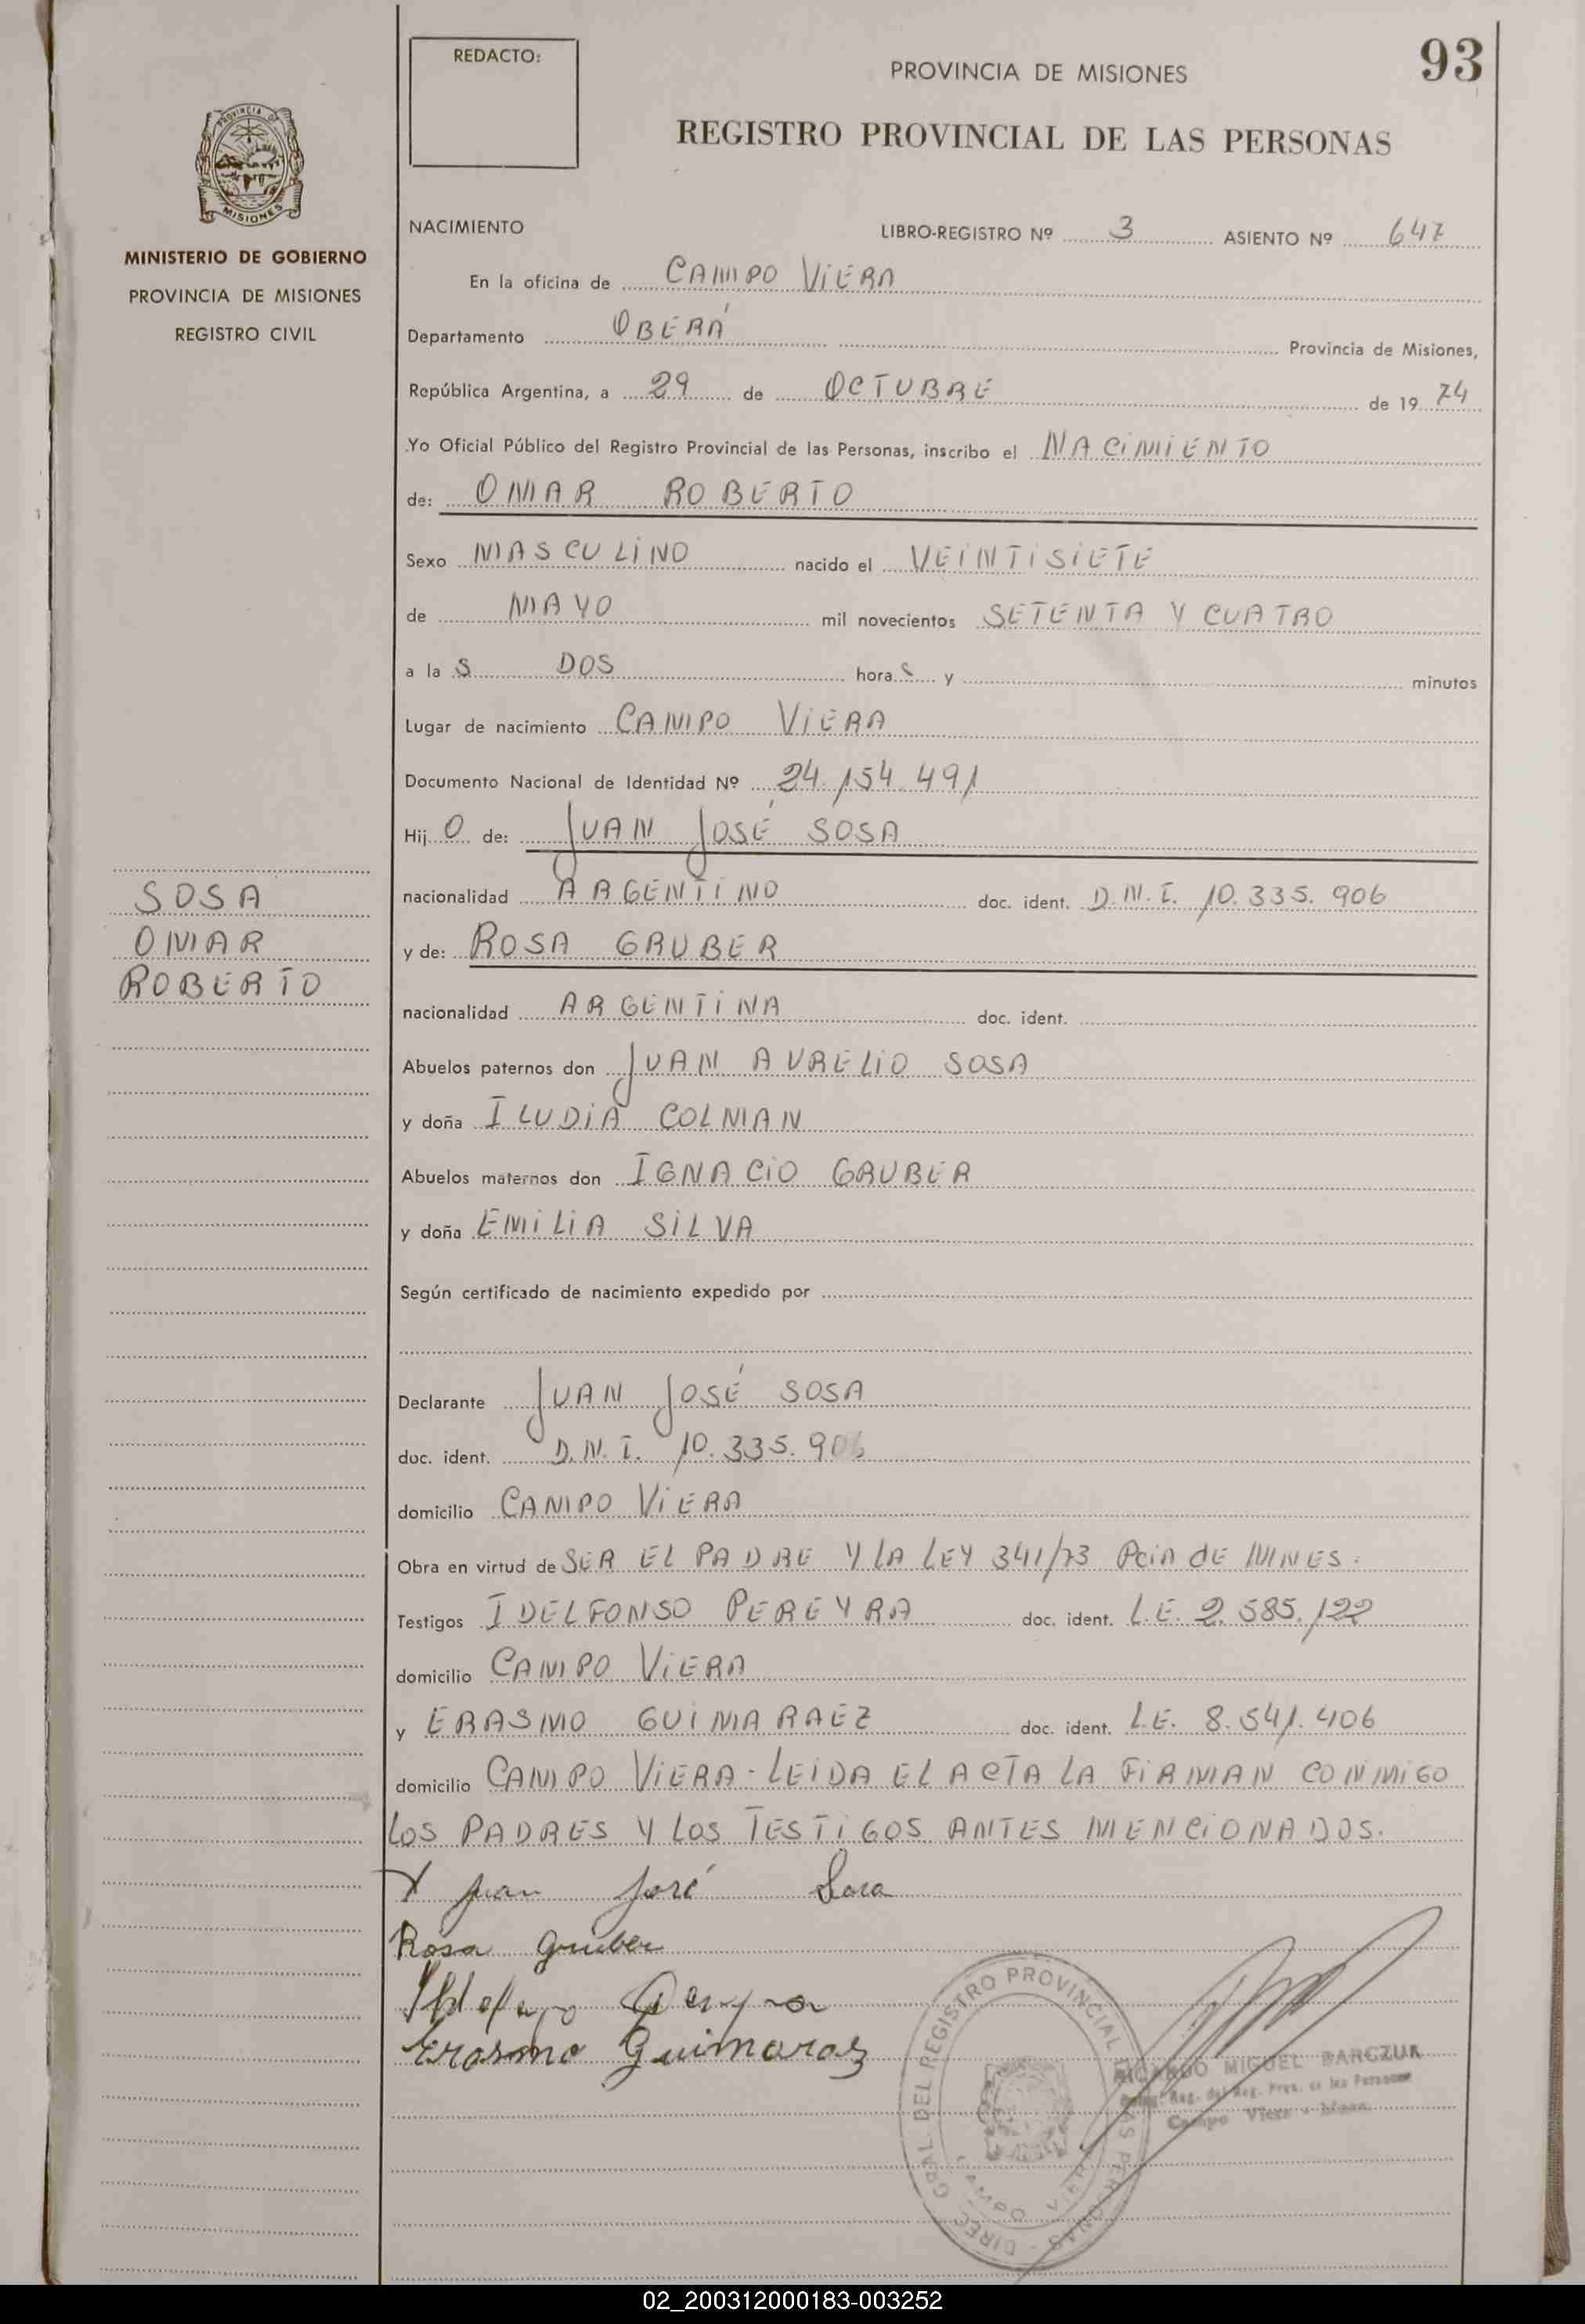 REDACTO:
PROVINCIA DE MISIONES
93
REGISTRO PROVINCIAL DE LAS PERSONAS
PROVINCIA DE
MISIONES
MINISTERIO DE GOBIERNO
PROVINCIA DE MISIONES
REGISTRO CIVIL
NACIMIENTO LIBRO-REGISTRO Nº 3 ASIENTO Nº 647
En la oficina de CAMPO VIERA
Departamento OBERÁ Provincia de Misiones,
República Argentina, a 29 de OCTUBRE de 19 74
Yo Oficial Público del Registro Provincial de las Personas, inscribo el NACIMIENTO
de: OMAR ROBERTO
Sexo MASCULINO nacido el VEINTISIETE
de MAYO mil novecientos SETENTA Y CUATRO
a la S DOS hora S y minutos
Lugar de nacimiento CAMPO VIERA
Documento Nacional de Identidad Nº 24.154.491
Hij O de: JUAN JOSÉ SOSA
nacionalidad ARGENTINO doc. ident. D.N.I. 10.335.906
y de: ROSA GRUBER
nacionalidad ARGENTINA doc. ident.
SOSA
OMAR
ROBERTO
Abuelos paternos don JUAN AURELIO SOSA
y doña ILUDIA COLMAN
Abuelos maternos don IGNACIO GRUBER
y doña EMILIA SILVA
Según certificado de nacimiento expedido por
Declarante JUAN JOSÉ SOSA
doc. ident. D.N.I. 10.335.906
domicilio CAMPO VIERA
Obra en virtud de SER EL PADRE Y LA LEY 341/73 PCIA DE MNES.
Testigos IDELFONSO PEREYRA doc. ident. L.E. 2.585.122
domicilio CAMPO VIERA
y ERASMO GUIMARAEZ doc. ident. L.E. 8.541.406
domicilio CAMPO VIERA - LEIDA EL ACTA LA FIRMAN CONMIGO
LOS PADRES Y LOS TESTIGOS ANTES MENCIONADOS.
X Juan José Sosa
Rosa Gruber
Erasmo Guimaraz
DIREC. GRAL. DEL REGISTRO PROVINCIAL DE LAS PERSONAS
CAMPO VIERA
RICARDO MIGUEL BARCZUK
Campo Viera - Mnes.
02_200312000183-003252